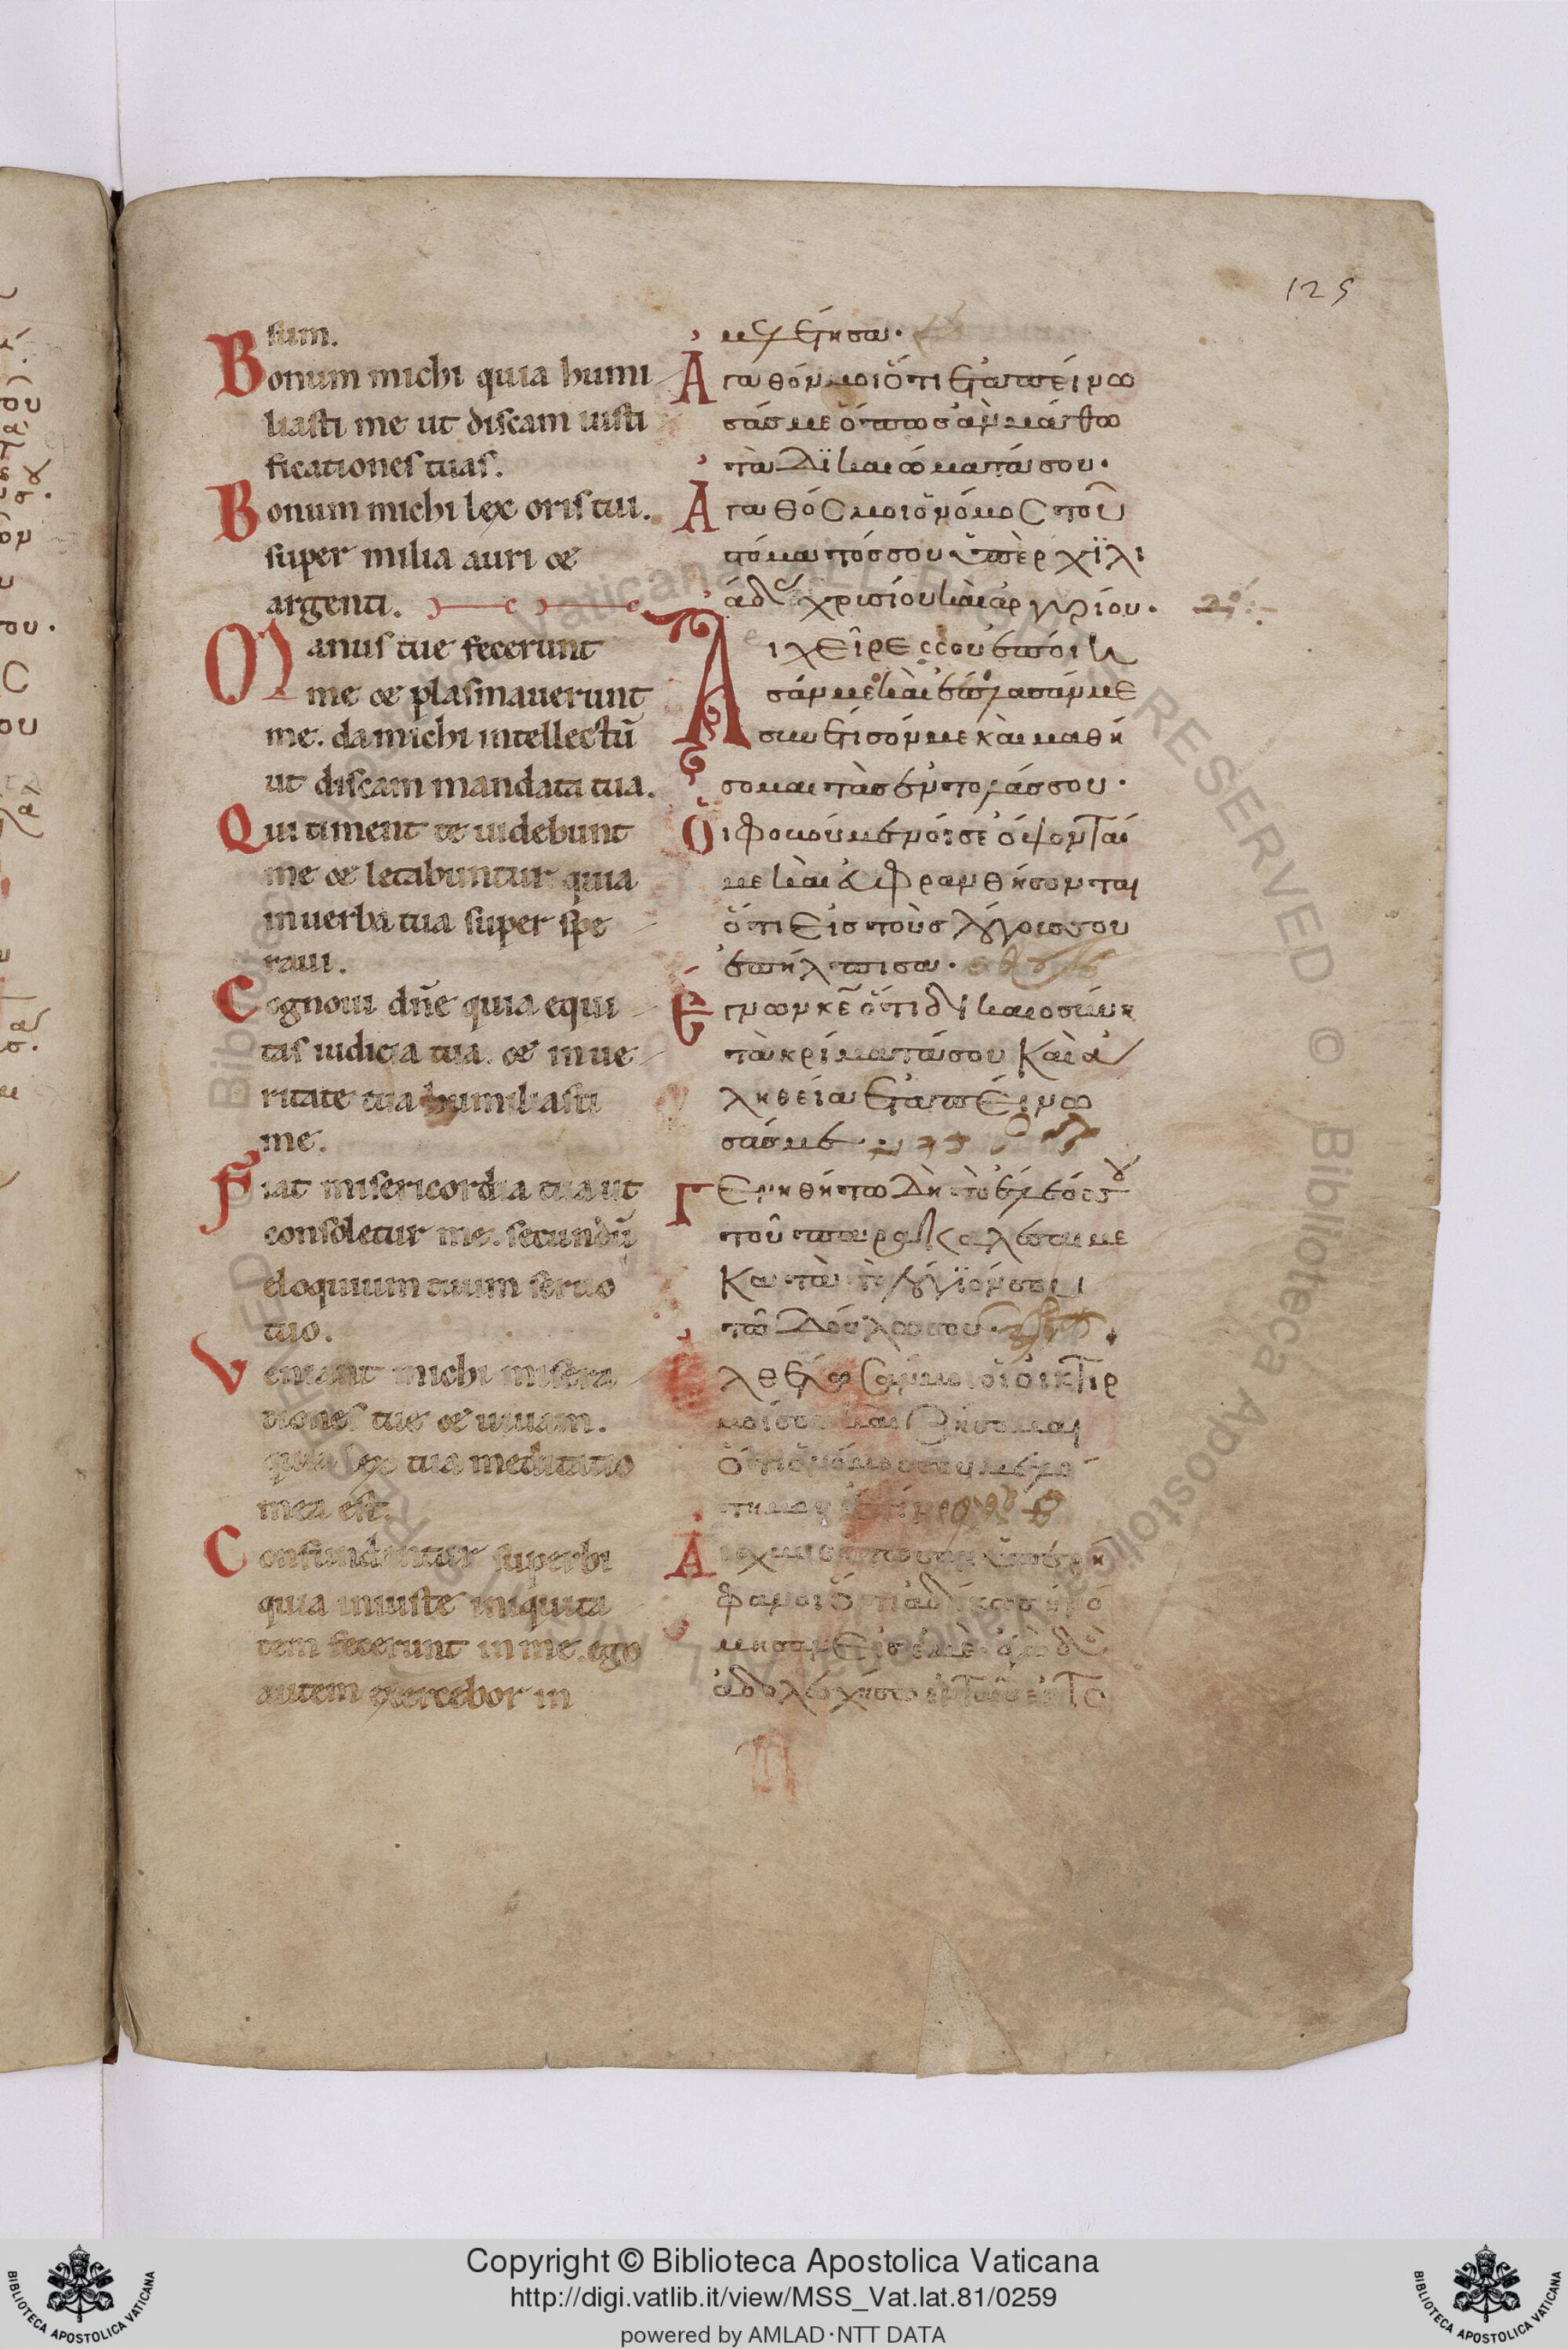 125
sum.
Bonum michi quia humi
liasti me ut discam iusti
ficationes tuas.
Bonum michi lex oris tui.
super milia auri et
argenti.
Manus tue fecerunt
me et plasmauerunt
me. da michi intellectū
ut discam mandata tua.
Qui timent te uidebunt
me et letabuntur quia
in uerba tua super spe
raui.
Cognoui dn̄e quia equi
tas iudicia tua. et in ue
ritate tua humiliasti
me.
Fiat misericordia tua ut
consoletur me. secundū
eloquium tuum seruo
tuo.
Veniant michi misera
tiones tue et uiuam.
quia lex tua meditatio
mea est.
Confundantur superbi
quia iniuste iniquita
tem fecerunt in me. ego
autem exercebor in
μελέτησα.
Ἀγαθόν μοι ὅτι ἐταπείνω
σάς με ὅπωσ ἀν μάθω
τὰ δϊκαιώματά σου.
Ἀγαθός μοι ὁ νόμος τοῦ
στόματόσ σου ὑπὲρ χϊλι
άδας χρισίου καὶ ἀργυρίου.
Αἱ χεῖρές σου ἐποίη
σάν με καὶ ἔπλασάν με
συνέτισόν με καὶ μαθή
σομαι τὰσ ἐντολάσ σου.
Οἱ φοβούμενοί σε ὄψονται
με καὶ εὐφρανθήσονται
ὅτι εἰσ τοὺσ λόγουσ σου
ἐπήλπισα.
Ἔγνων κε̄ ὅτι δικαιοσύνη
τὰ κρίματά σου καὶ ἀ
ληθεία ἐταπείνω
σάσ με.
Γενηθήτω δὴ τὸ ἔλεόσ σου
τοῦ παρακαλέσαι με
κατὰ τὸ λόγϊόν σου
τῶ δούλω σου.
Ἐλθέτωσάν μοι οἱ οἰκτιρ
μοί σου καὶ ζήσομαι
ὅτι ὁ νόμοσ σου μελέ
τη μου ἐστίν
φανοι ὅτι ἀδίκωσ ἠνό
μησαν εἰσ ἐμὲ. ἐγὼ δὲ
Copyright © Biblioteca Apostolica Vaticana
http://digi.vatlib.it/view/MSS_Vat.lat.81/0259
powered by AMLAD·NTT DATA